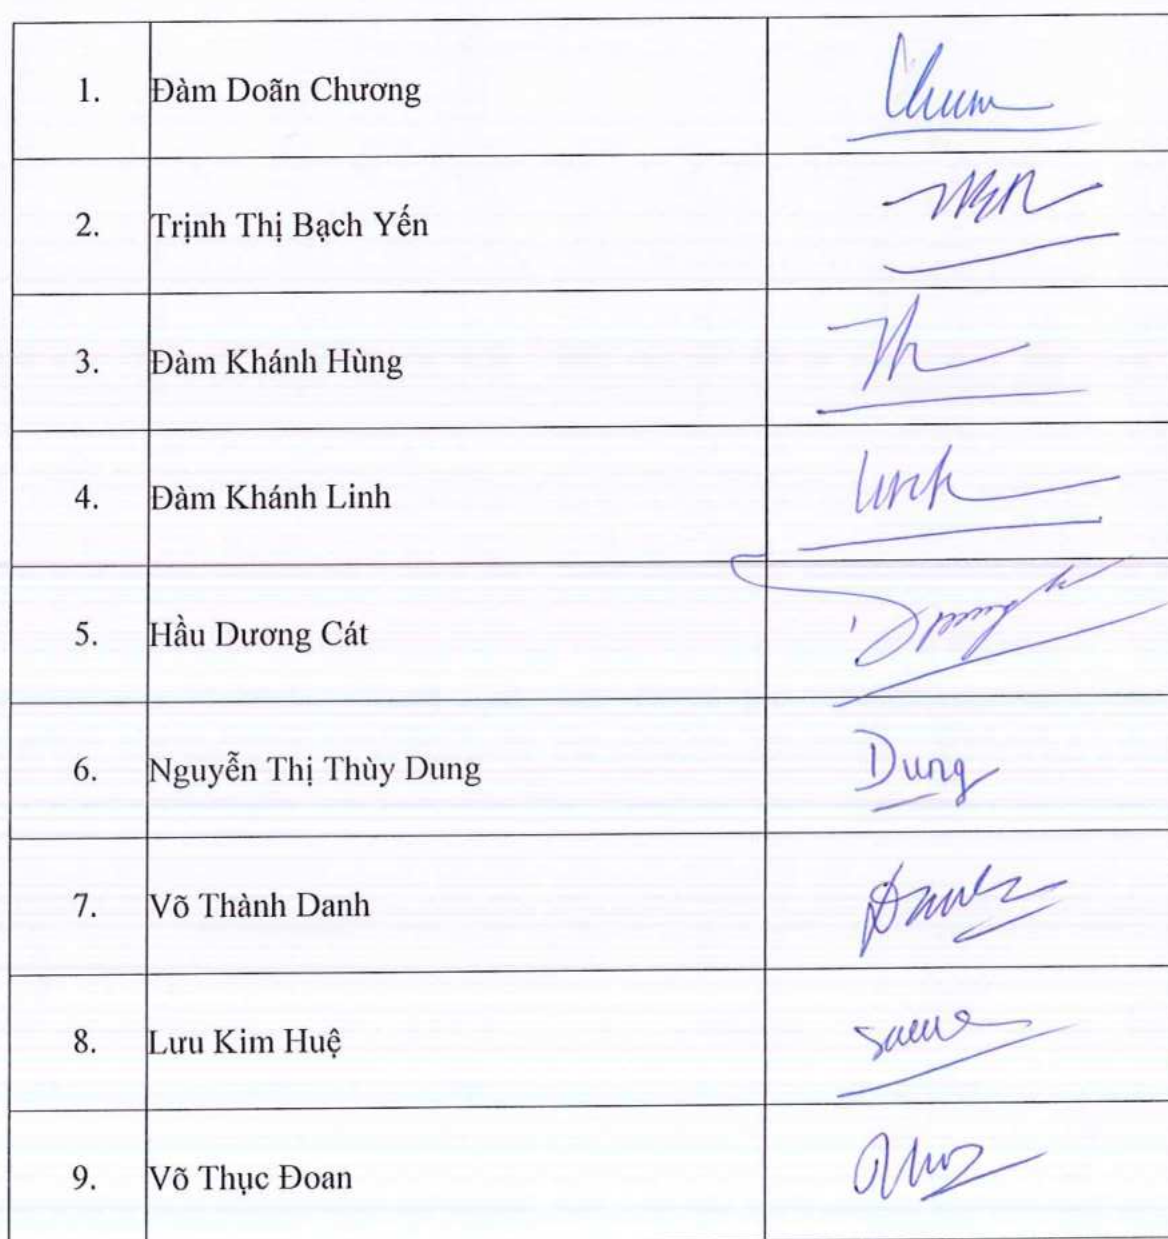 1. Đàm Doãn Chương
2. Trịnh Thị Bạch Yến
3. Đàm Khánh Hùng
4. Đàm Khánh Linh
5. Hầu Dương Cát
6. Nguyễn Thị Thùy Dung Dung
7. Võ Thành Danh
8. Lưu Kim Huệ
9. Võ Thục Đoan